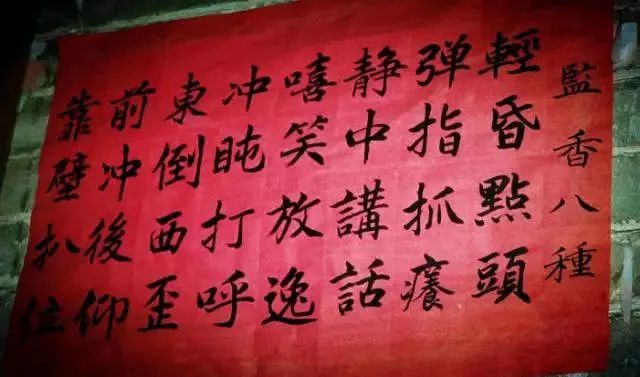 監香八種
輕昏點頭
弹指抓癢
静中講話
嘻笑放逸
冲盹打呼
東倒西歪
前冲後仰
靠壁扒位